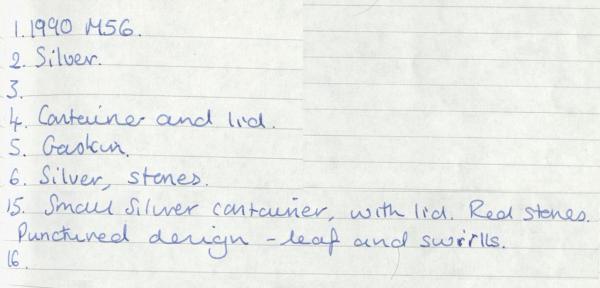 1. 1990 M56.
2. Silver.
3.
4. Container and lid.
5. Gaskin.
6. Silver, stones.
15. Small silver container, with lid. Red stones.
Punctured design - leaf and swirlls.
16.